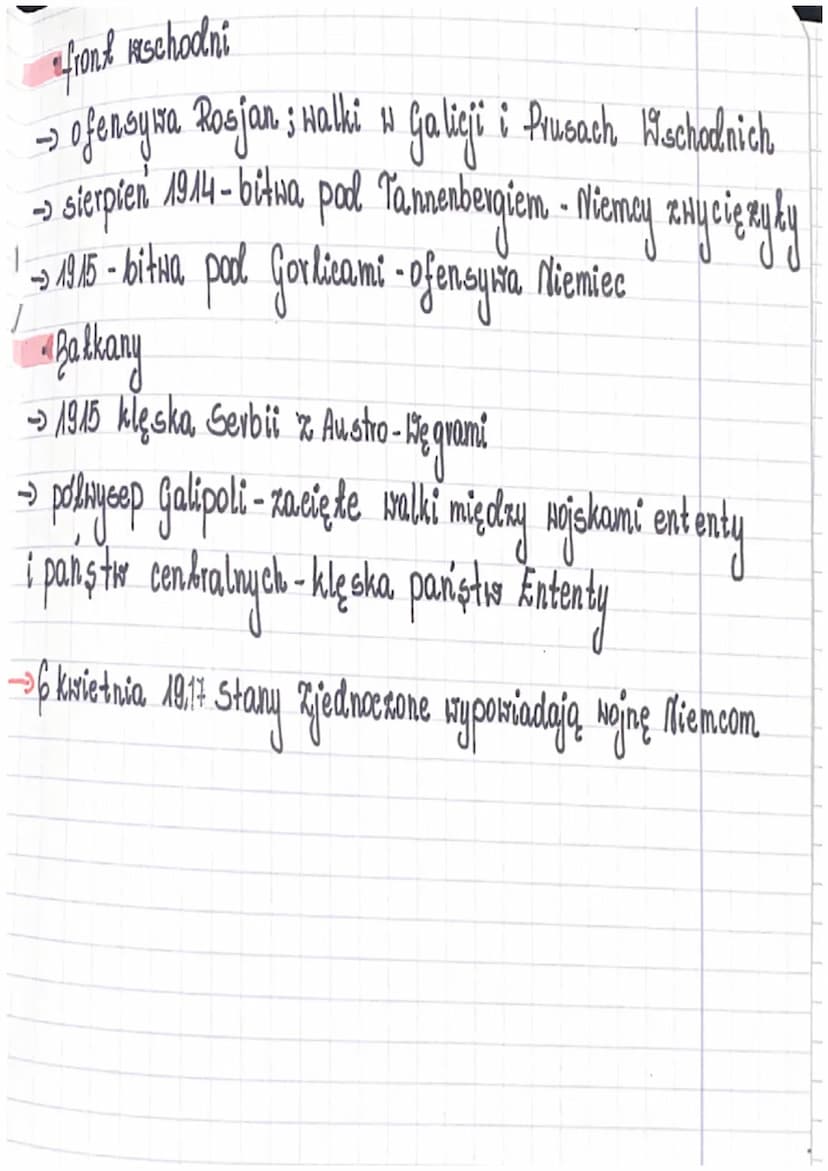 • front wschodni
→ ofensywa Rosjan; walki w Galicji i Prusach Wschodnich
→ sierpień 1914 - bitwa pod Tannenbergiem - Niemcy zwyciężyły
→ 1915 - bitwa pod Gorlicami - ofensywa Niemiec
• Bałkany
→ 1915 klęska Serbii z Austro-Węgrami
→ półwysep Galipoli - zacięte walki między wojskami ententy
i państw centralnych - klęska państw Ententy
→ 6 kwietnia 1917 Stany Zjednoczone wypowiadają wojnę Niemcom